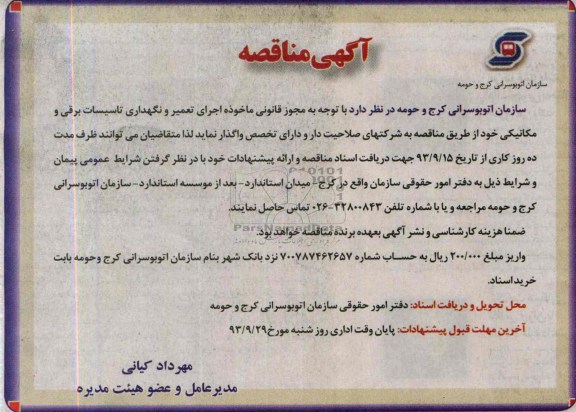 آگهی مناقصه
سازمان اتوبوسرانی کرج و حومه
سازمان اتوبوسرانی کرج و حومه در نظر دارد با توجه به مجوز قانونی ماخوذه اجرای تعمیر و نگهداری تاسیسات برقی و
مکانیکی خود از طریق مناقصه به شرکتهای صلاحیت دار و دارای تخصص واگذار نماید لذا متقاضیان می توانند ظرف مدت
ده روز کاری از تاریخ ۹۳/۹/۱۵ جهت دریافت اسناد مناقصه و ارائه پیشنهادات خود با در نظر گرفتن شرایط عمومی پیمان
و شرایط ذیل به دفتر امور حقوقی سازمان واقع در کرج- میدان استاندارد- بعد از موسسه استاندارد- سازمان اتوبوسرانی
کرج و حومه مراجعه و یا با شماره تلفن ۳۲۸۰۰۸۴۳-۰۲۶ تماس حاصل نمایند.
ضمنا هزینه کارشناسی و نشر آگهی بعهده برنده مناقصه خواهد بود.
واریز مبلغ ۲۰۰/۰۰۰ ریال به حساب شماره ۷۰۰۷۸۷۴۶۲۶۵۷ نزد بانک شهر بنام سازمان اتوبوسرانی کرج وحومه بابت
خرید اسناد.
محل تحویل و دریافت اسناد: دفتر امور حقوقی سازمان اتوبوسرانی کرج و حومه
آخرین مهلت قبول پیشنهادات: پایان وقت اداری روز شنبه مورخ ۹۳/۹/۲۹
مهرداد کیانی
مدیرعامل و عضو هیئت مدیره